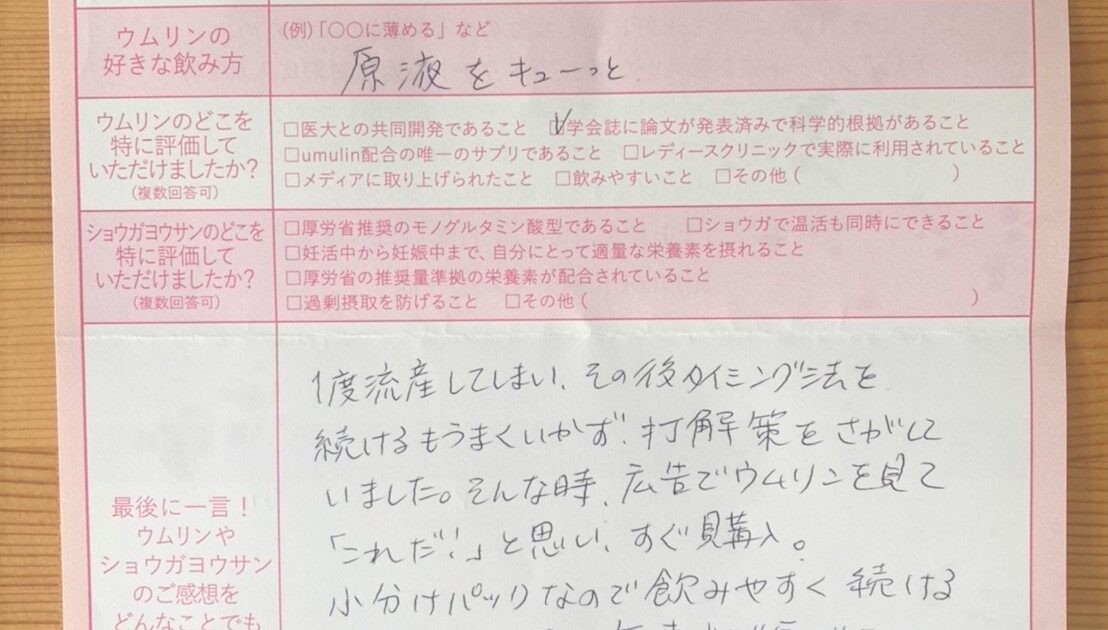 ウムリンの
好きな飲み方
(例)「〇〇に薄める」など
原液をキューっと
ウムリンのどこを
特に評価して
いただけましたか?
(複数回答可)
□医大との共同開発であること ☑学会誌に論文が発表済みで科学的根拠があること
□umulin配合の唯一のサプリであること □レディースクリニックで実際に利用されていること
□メディアに取り上げられたこと □飲みやすいこと □その他( )
ショウガヨウサンのどこを
特に評価して
いただけましたか?
(複数回答可)
□厚労省推奨のモノグルタミン酸型であること □ショウガで温活も同時にできること
□妊活中から妊娠中まで、自分にとって適量な栄養素を摂れること
□厚労省の推奨量準拠の栄養素が配合されていること
□過剰摂取を防げること □その他( )
最後に一言!
ウムリンや
ショウガヨウサン
のご感想を
どんなことでも
1度流産してしまい、その後タイミング法を
続けるもうまくいかず、打解策をさがして
いました。そんな時、広告でウムリンを見て
「これだ!」と思い、すぐ購入。
小分けパックなので飲みやすく続ける